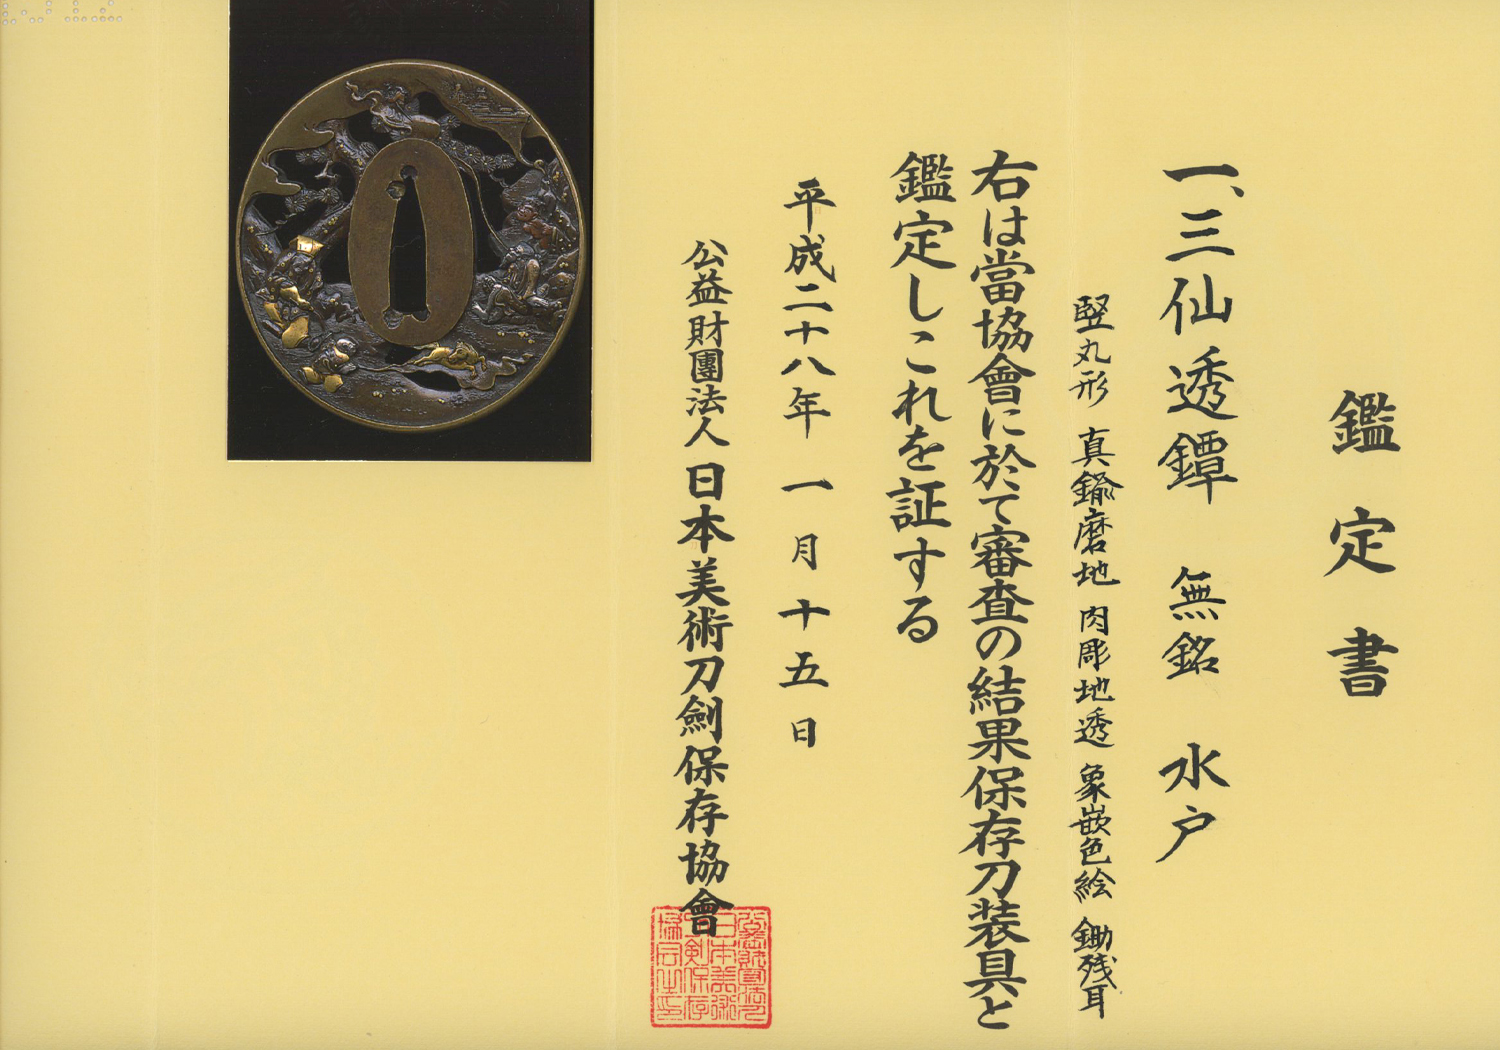 鑑定書
一、三仙透鐔 無銘 水戸
竪丸形 真鍮磨地 肉彫地透 象嵌色絵 鋤残耳
右は當協會に於て審査の結果保存刀装具と
鑑定しこれを証する
平成二十八年一月十五日
公益財團法人日本美術刀劍保存協會